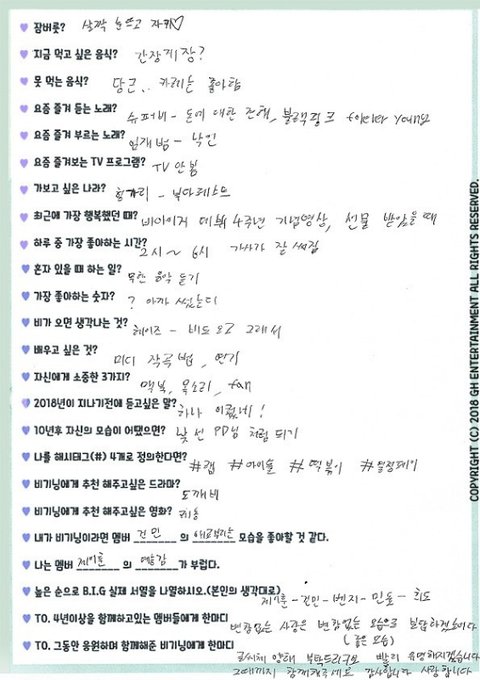 ♥ 잠버릇? 살짝 눈뜨고 자기♡
♥ 지금 먹고 싶은 음식? 간장게장?
♥ 못 먹는 음식? 당근.. 카레는 좋아함
♥ 요즘 즐겨 듣는 노래? 슈퍼비 - 돈에 대한 전해, 블랙핑크 forever young
♥ 요즘 즐겨 부르는 노래? 임재범 - 낙인
♥ 요즘 즐겨보는 TV 프로그램? TV 안봄
♥ 가보고 싶은 나라? 헝가리 - 부다페스트
♥ 최근에 가장 행복했던 때? 비아이지 데뷔 4주년 기념영상, 선물 받았을 때
♥ 하루 중 가장 좋아하는 시간? 2시 ~ 6시 가사가 잘 써짐
♥ 혼자 있을 때 하는 일? 무한 음악 듣기
♥ 가장 좋아하는 숫자? ? 아까 썼는디
♥ 비가 오면 생각나는 것? 헤이즈 - 비도 오고 그래서
♥ 배우고 싶은 것? 미디 작곡법, 연기
♥ 자신에게 소중한 3가지? 맥북, 목소리, fan
♥ 2018년이 지나기전에 듣고싶은 말? 하나 이뤘네!
♥ 10년후 자신의 모습이 어땠으면? 낯선 PD님 처럼 되기
♥ 나를 해시태그(#) 4개로 정의한다면? #랩 #아이돌 #떡볶이 #열정페이
♥ 비기닝에게 추천 해주고싶은 드라마? 도깨비
♥ 비기닝에게 추천 해주고싶은 영화?
♥ 내가 비기닝이라면 멤버 건민 의 애교부리는 모습을 좋아할 것 같다.
♥ 나는 멤버 제이훈 의 예능감 가 부럽다.
♥ 높은 순으로 B.I.G 실제 서열을 나열하시오.(본인의 생각대로) 제이훈 - 건민 - 벤지 - 민표 - 희도
♥ TO. 4년이상을 함께하고있는 멤버들에게 한마디 변함없는 사랑은 변함없는 모습으로 보답하겠습니다
(좋은 모습)
♥ TO. 그동안 응원하며 함께해준 비기닝에게 한마디 글씨체 양해 부탁드리구요 빨리 유명해지겠습니다
그때까지 함께해주세요 감사합니다 사랑합니다
COPYRIGHT (C) 2018 GH ENTERTAINMENT ALL RIGHTS RESERVED.